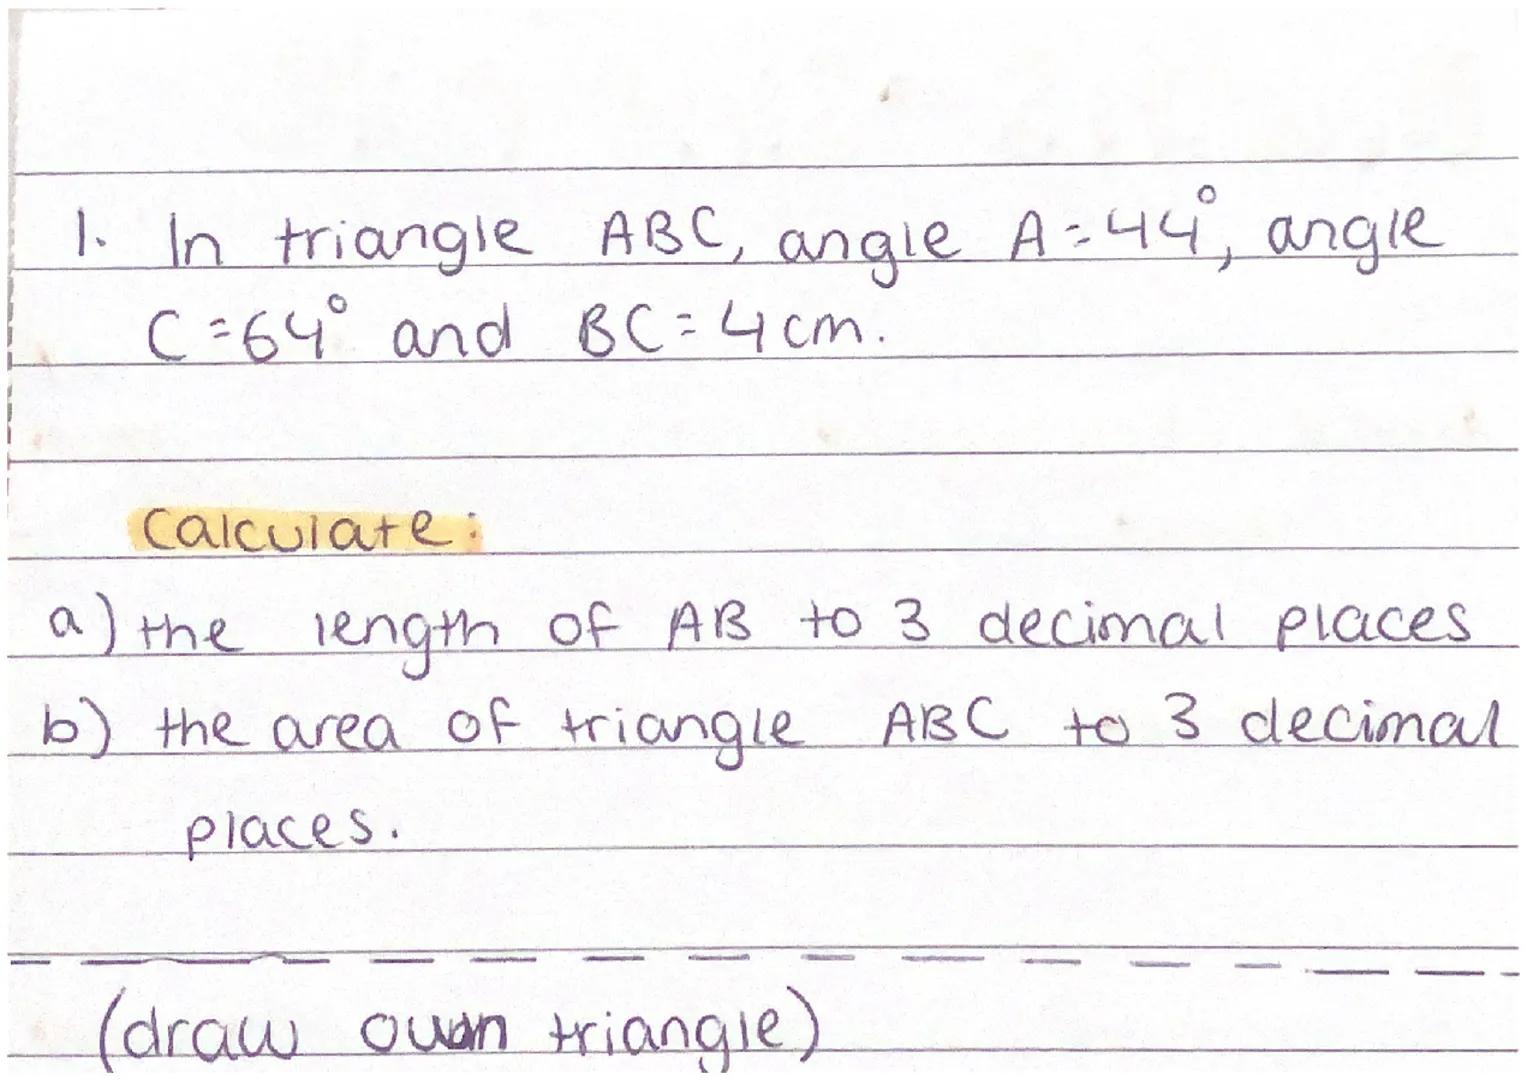 1. In triangle ABC, angle A=44°, angle
C=64° and BC=4cm.
Calculate:
a) the length of AB to 3 decimal places
b) the area of triangle ABC to 3 decimal
places.
(draw own triangle)